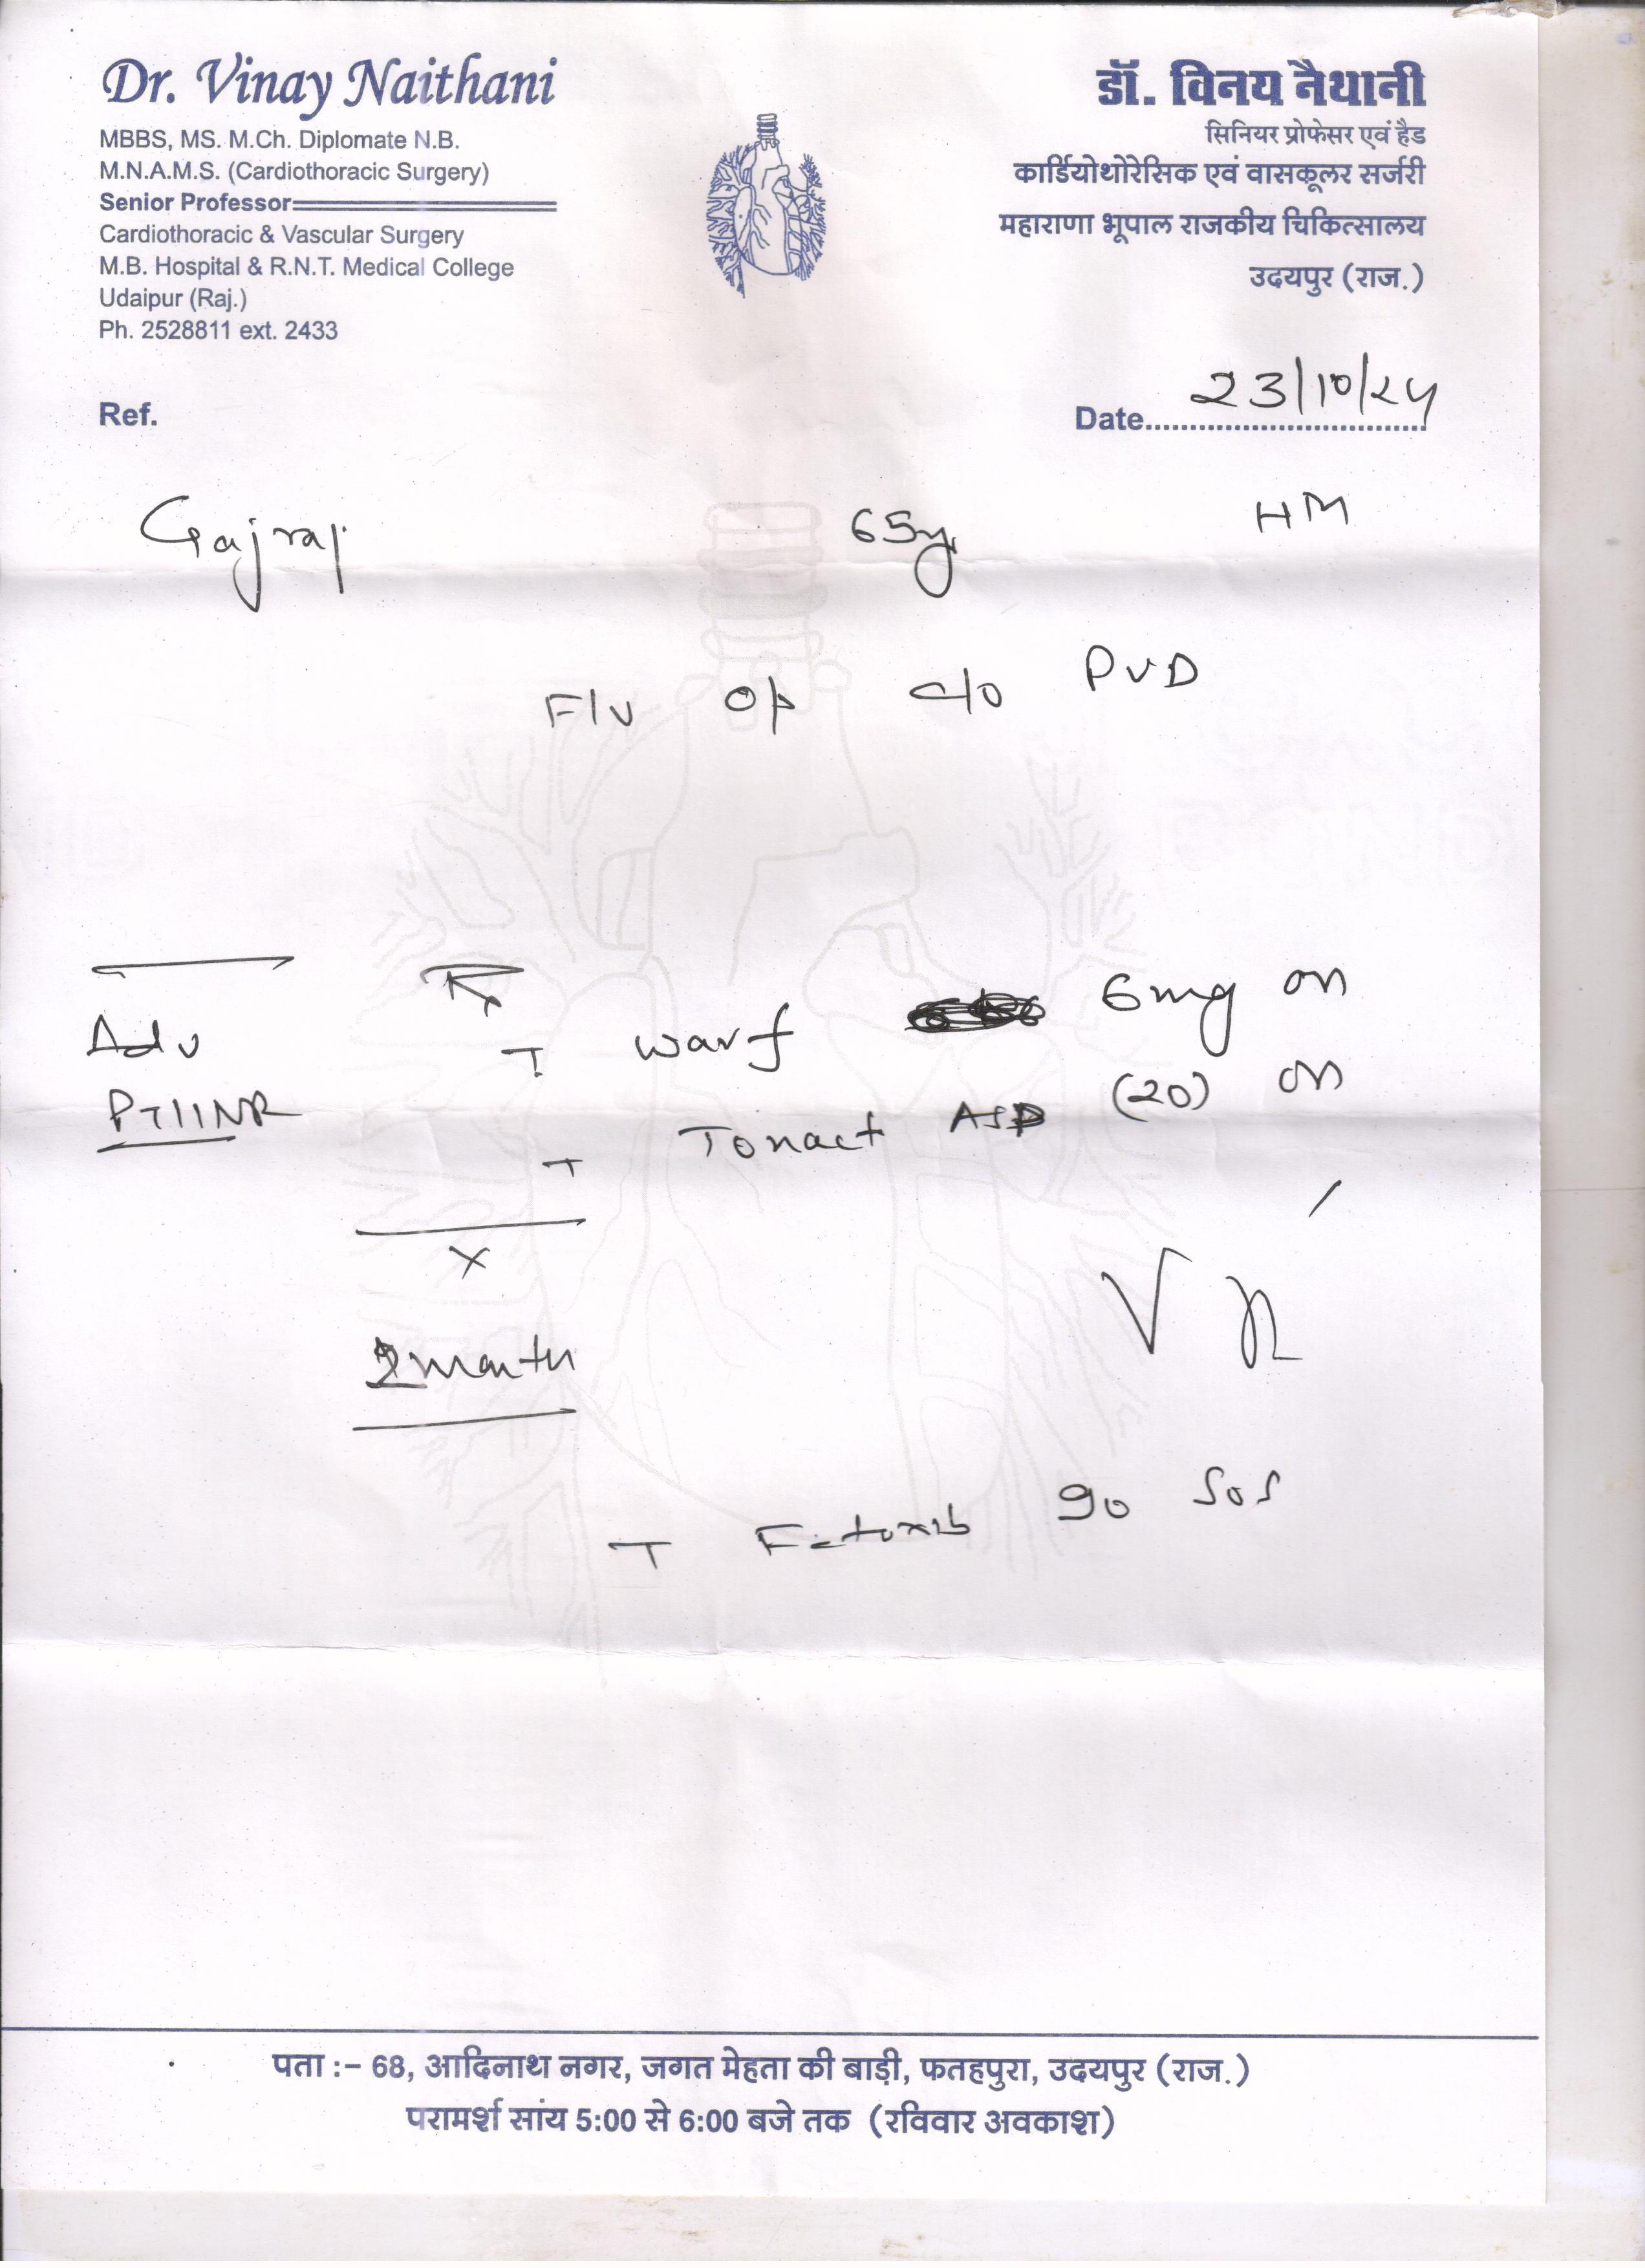 Dr. Vinay Naithani
MBBS, MS. M.Ch. Diplomate N.B.
M.N.A.M.S. (Cardiothoracic Surgery)
Senior Professor
Cardiothoracic & Vascular Surgery
M.B. Hospital & R.N.T. Medical College
Udaipur (Raj.)
Ph. 2528811 ext. 2433
डॉ. विनय नैथानी
सिनियर प्रोफेसर एवं हैड
कार्डियोथोरेसिक एवं वासकूलर सर्जरी
महाराणा भूपाल राजकीय चिकित्सालय
उदयपुर (राज.)
Ref.
Date 23/10/24
Gajraj 65y HM
F/U op c/o PVD
Adv
PT/INR
Rx
T warf 6mg on
T Tonact ASP (20) on
X
2 month
T 90 SOS
पता :– 68, आदिनाथ नगर, जगत मेहता की बाड़ी, फतहपुरा, उदयपुर (राज.)
परामर्श सांय 5:00 से 6:00 बजे तक (रविवार अवकाश)